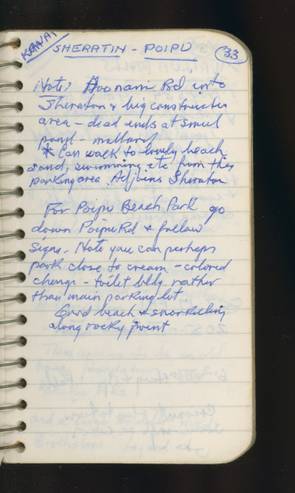 KAWAI
SHERATIN - POIPU
33
Note: Hoonani Rd into
Sheraton & big construction
area - dead ends at small
point - military
* Can walk to lovely beach
sand, swimming etc from this
parking area. Adjoins Sheraton
For Poipu Beach Park go
down Poipu Rd & follow
signs. Note you can perhaps
park close to cream-colored
change-toilet bldg rather
than main parking lot.
Good beach & snorkeling
along rocky point